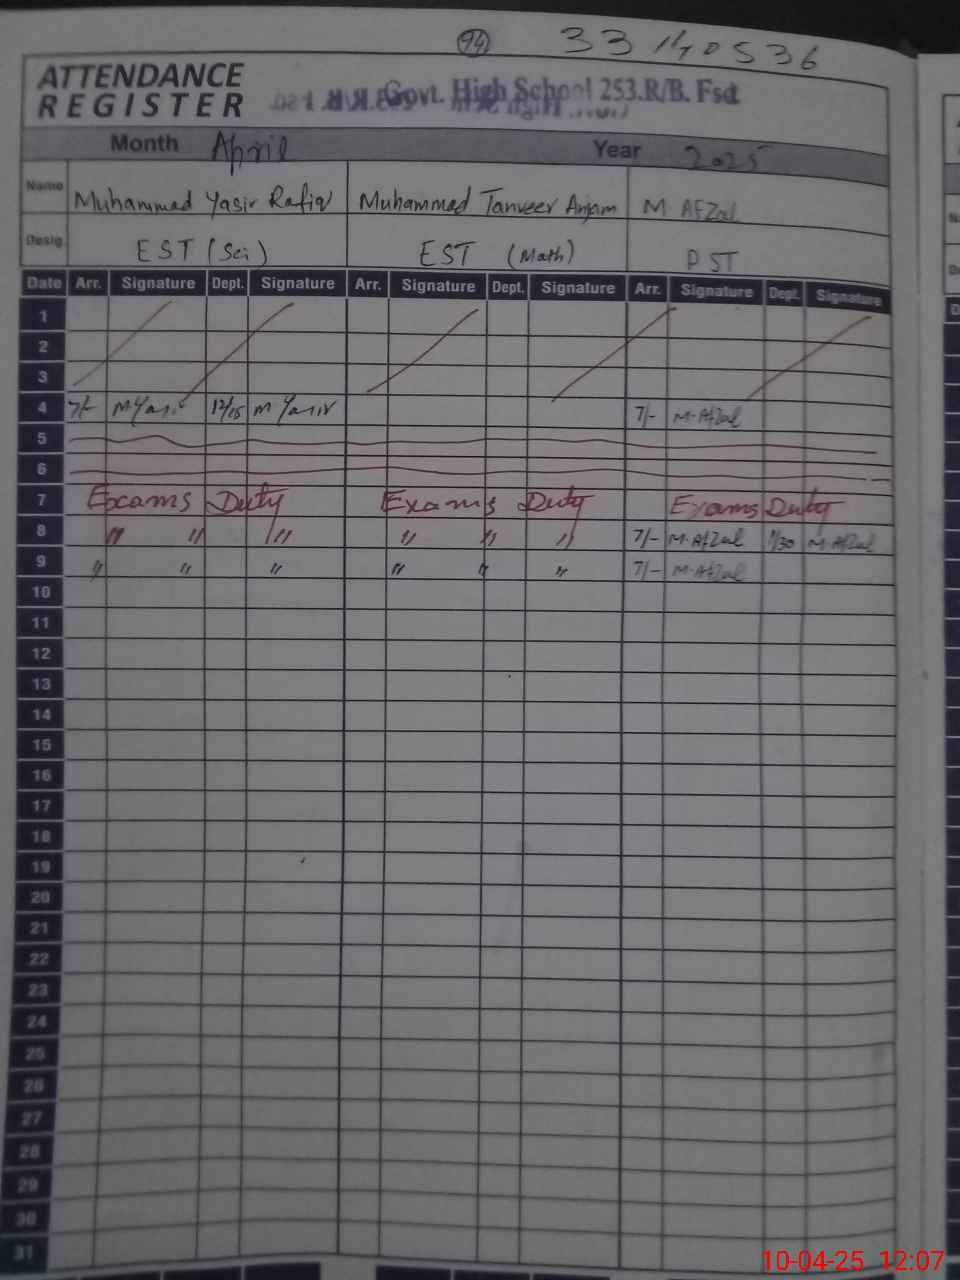 94 33140536
ATTENDANCE
REGISTER Govt. High School 253.R/B. Fsd
Month April Year 2025
Name Muhammad Yasir Rafiq Muhammad Tanveer Anjam M. Afzal
Desig. EST (Sci) EST (Math) PST
Date Arr. Signature Dept. Signature Arr. Signature Dept. Signature Arr. Signature Dept. Signature
1
2
3
4 7/- M Yasir 12/15 M Yasir 7/- M. Afzal
5
6
7 Exams Duty Exams Duty Exams Duty
8 " " " " " " 7/- M. Afzal 1/30 M. Afzal
9 " " " " " " 7/- M. Afzal
10
11
12
13
14
15
16
17
18
19
20
21
22
23
24
25
26
27
28
29
30
31
10-04-25 12:07